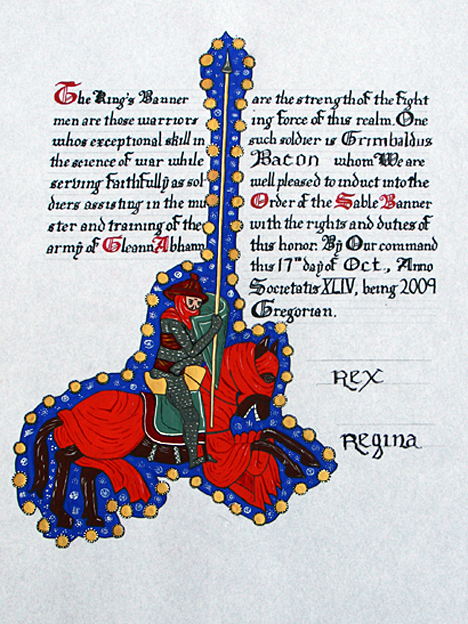 The King's Banner
men are those warriors
whos exceptional skill in
the science of war while
serving faithfully as sol
diers assisting in the mu
ster and training of the
army of Gleann Abhann
are the strength of the fight
ing force of this realm. One
such soldier is Grimbaldus
Bacon whom We are
well pleased to induct into the
Order of the Sable Banner
with the rights and duties of
this honor. By Our command
this 17th day of Oct., Anno
Societatis XLIV, being 2009
Gregorian.
Rex
Regina